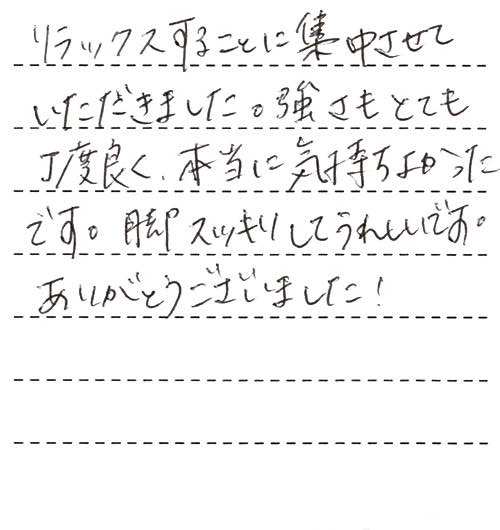 リラックスすることに集中させて
いただきました。強さもとても
丁度良く、本当に気持ちよかった
です。脚スッキリしてうれしいです。
ありがとうございました!